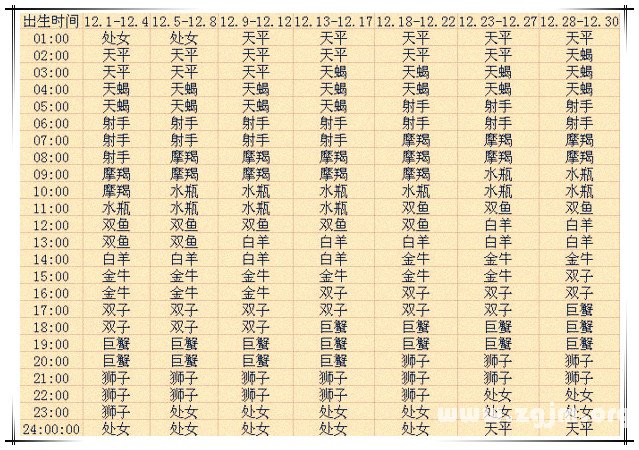 出生时间 12.1-12.4 12.5-12.8 12.9-12.12 12.13-12.17 12.18-12.22 12.23-12.27 12.28-12.30
01:00 处女 处女 天平 天平 天平 天平 天平
02:00 天平 天平 天平 天平 天平 天平 天蝎
03:00 天平 天平 天平 天蝎 天蝎 天蝎 天蝎
04:00 天蝎 天蝎 天蝎 天蝎 天蝎 天蝎 天蝎
05:00 天蝎 天蝎 天蝎 天蝎 射手 射手 射手
06:00 射手 射手 射手 射手 射手 射手 射手
07:00 射手 射手 射手 射手 摩羯 摩羯 摩羯
08:00 射手 摩羯 摩羯 摩羯 摩羯 摩羯 摩羯
09:00 摩羯 摩羯 摩羯 摩羯 摩羯 水瓶 水瓶
10:00 摩羯 水瓶 水瓶 水瓶 水瓶 水瓶 水瓶
11:00 水瓶 水瓶 水瓶 水瓶 双鱼 双鱼 双鱼
12:00 双鱼 双鱼 双鱼 双鱼 双鱼 白羊 白羊
13:00 双鱼 双鱼 白羊 白羊 白羊 白羊 白羊
14:00 白羊 白羊 白羊 白羊 金牛 金牛 金牛
15:00 金牛 金牛 金牛 金牛 金牛 金牛 双子
16:00 金牛 金牛 金牛 双子 双子 双子 双子
17:00 双子 双子 双子 双子 双子 双子 巨蟹
18:00 双子 双子 双子 巨蟹 巨蟹 巨蟹 巨蟹
19:00 巨蟹 巨蟹 巨蟹 巨蟹 巨蟹 巨蟹 巨蟹
20:00 巨蟹 巨蟹 巨蟹 巨蟹 狮子 狮子 狮子
21:00 狮子 狮子 狮子 狮子 狮子 狮子 狮子
22:00 狮子 狮子 狮子 狮子 狮子 处女 处女
23:00 狮子 处女 处女 处女 处女 处女 处女
24:00:00 处女 处女 处女 处女 处女 天平 天平
www.zgjm.org